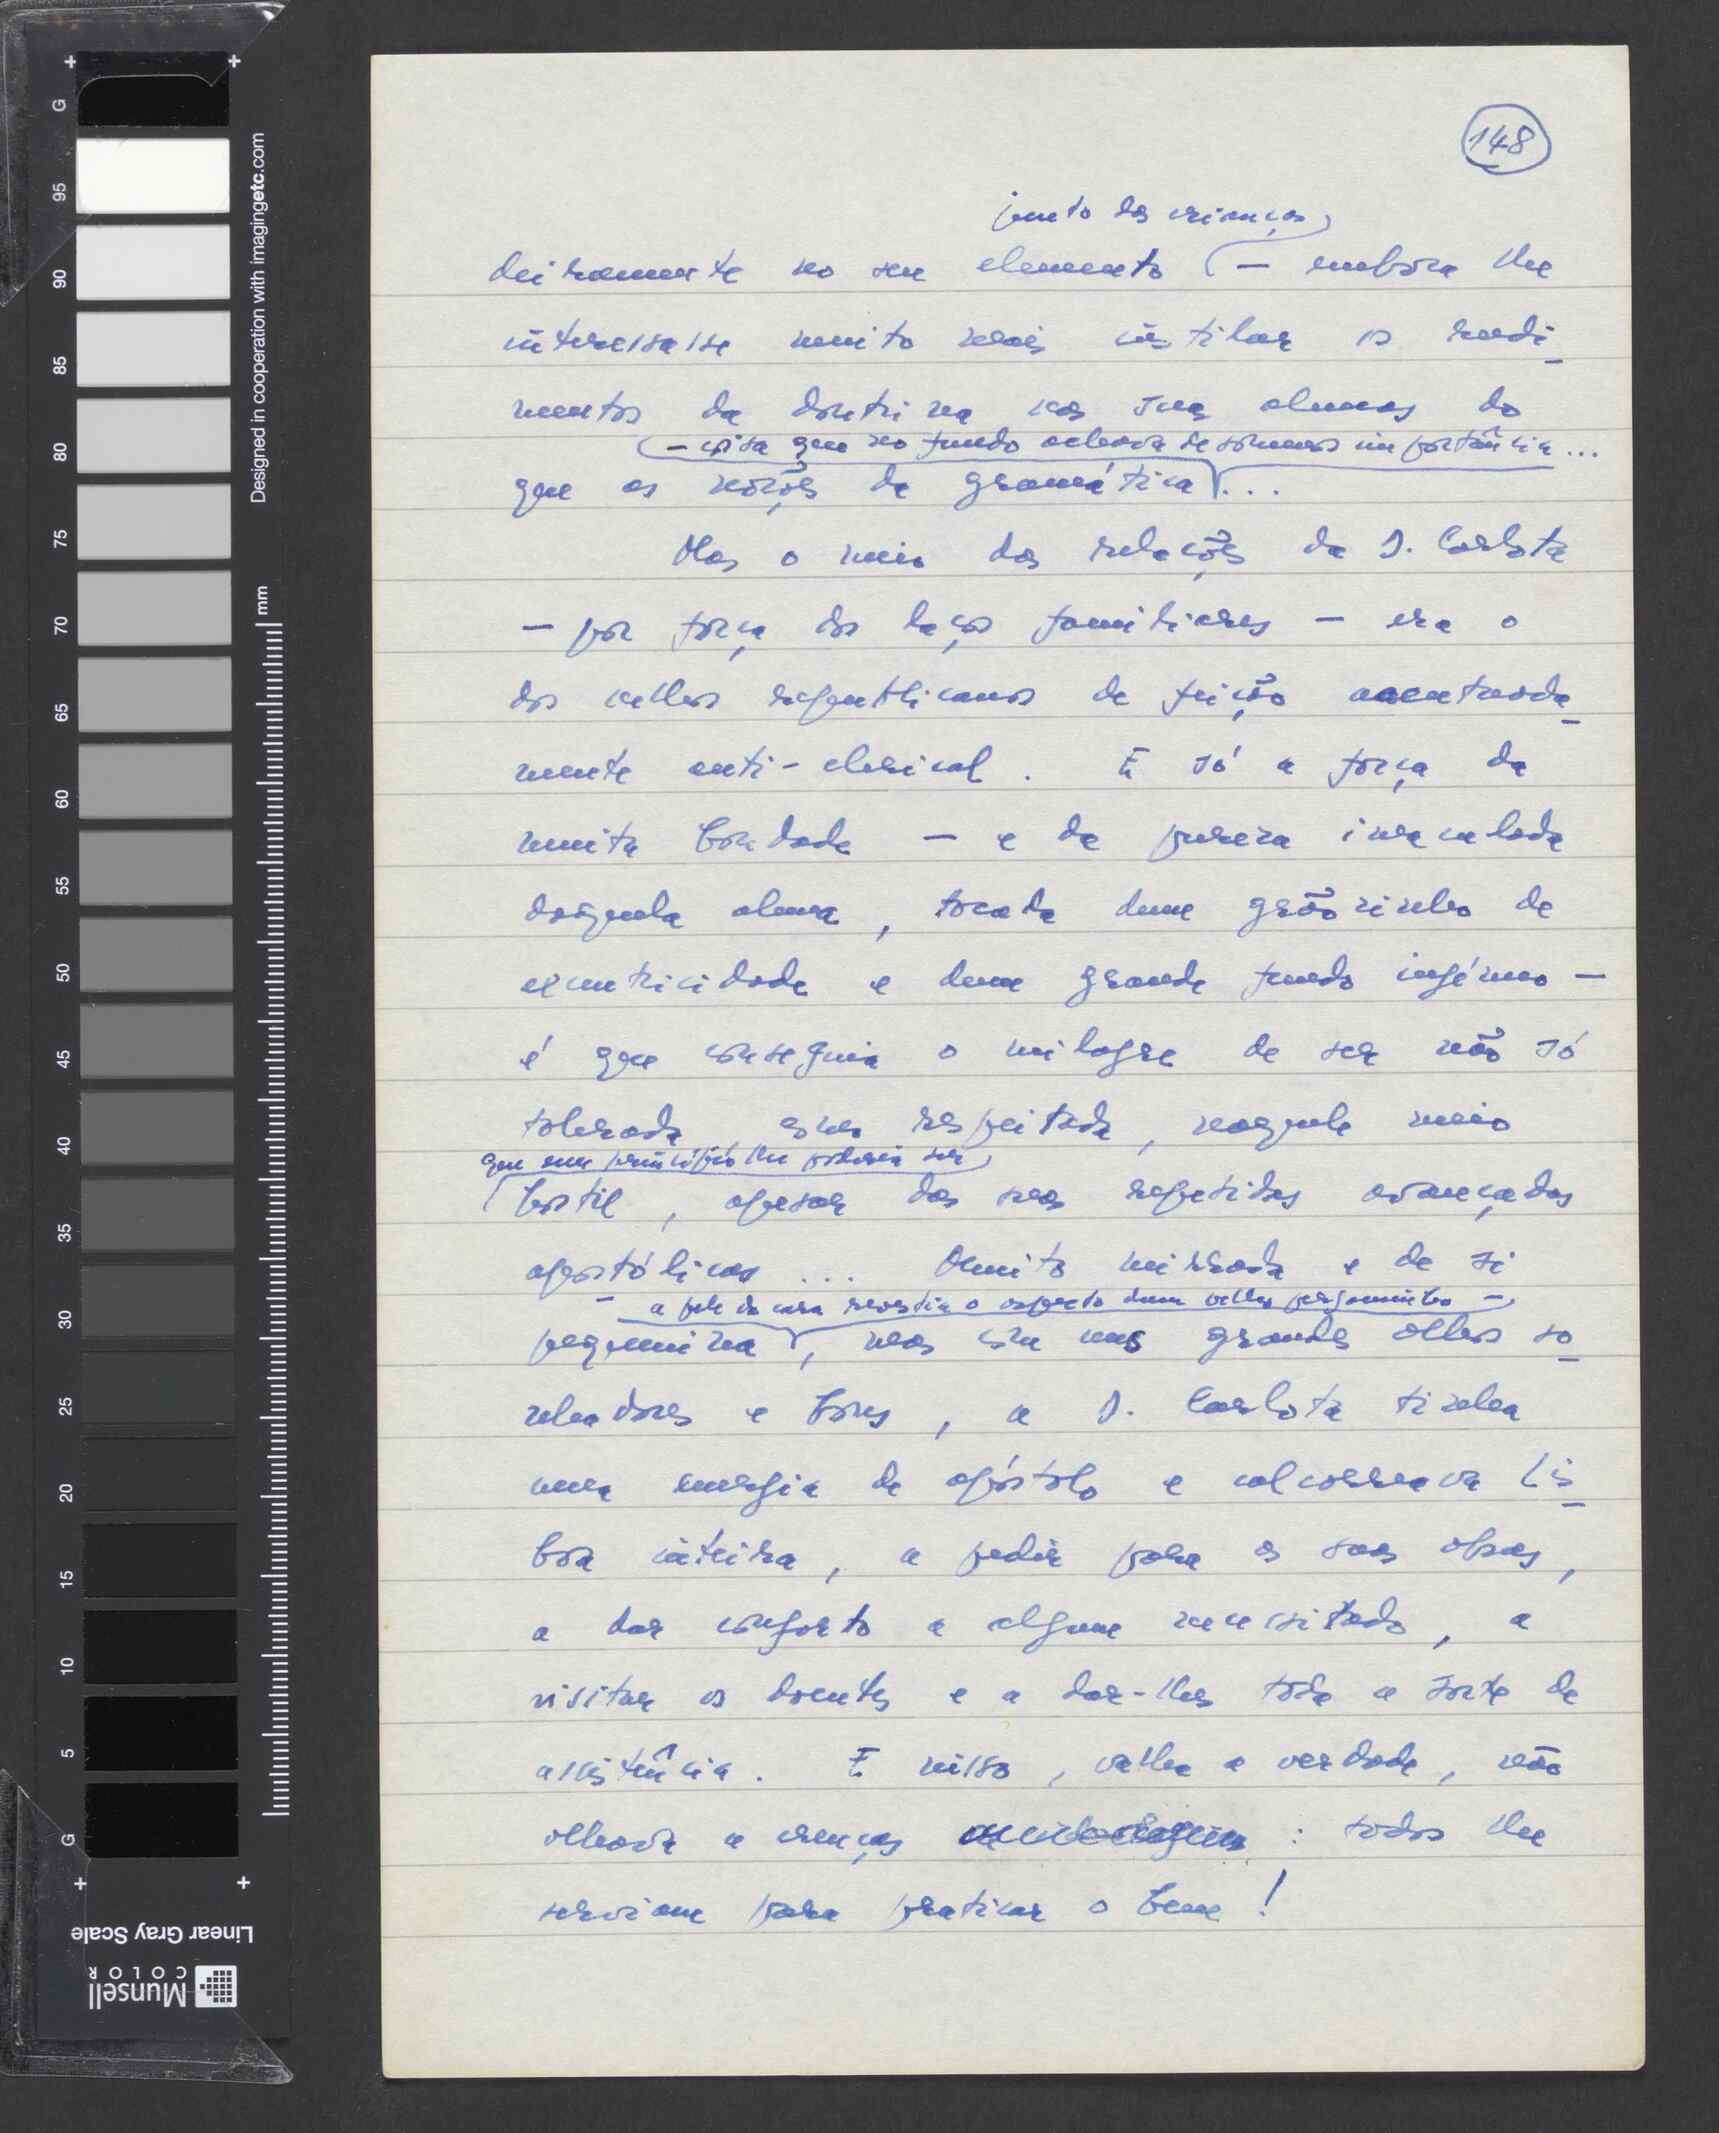 148
junto das crianças
deiramente no seu elemento — embora lhe
interessasse muito mais instilar os rudi-
mentos da doutrina nas suas almas do
— coisa que no fundo achava de somenos importância...
que as noções de gramática...
Mas o meio das relações da D. Carlota
— por força dos laços familiares — era o
dos velhos republicanos de feição acentuada-
mente anti-clerical. E só a força da
muita bondade — e da pureza imaculada
daquela alma, tocada dum grãozinho de
excentricidade e dum grande fundo ingénuo —
é que conseguia o milagre de ser não só
tolerada mas respeitada, naquele meio
que em princípio lhe poderia ser
hostil, apesar das suas repetidas avançadas
apostólicas... Muito mirrada e de si
a pele da cara revestia o aspecto dum velho pergaminho —
pequenina, mas com uns grandes olhos so-
nhadores e bons, a D. Carlota tinha
uma energia de apóstolo e calcorreava Lis-
boa inteira, a pedir para as suas obras,
a dar conforto a algum necessitado, a
visitar os doentes e a dar-lhes toda a sorte de
assistência. E nisso, valha a verdade, não
olhava a crenças : todos lhe
serviam para praticar o bem!
Designed in cooperation with imagingetc.com
mm
G
95
90
85
80
75
70
65
60
55
50
45
40
35
30
25
20
15
10
5
G
Linear Gray Scale
Munsell
COLOR